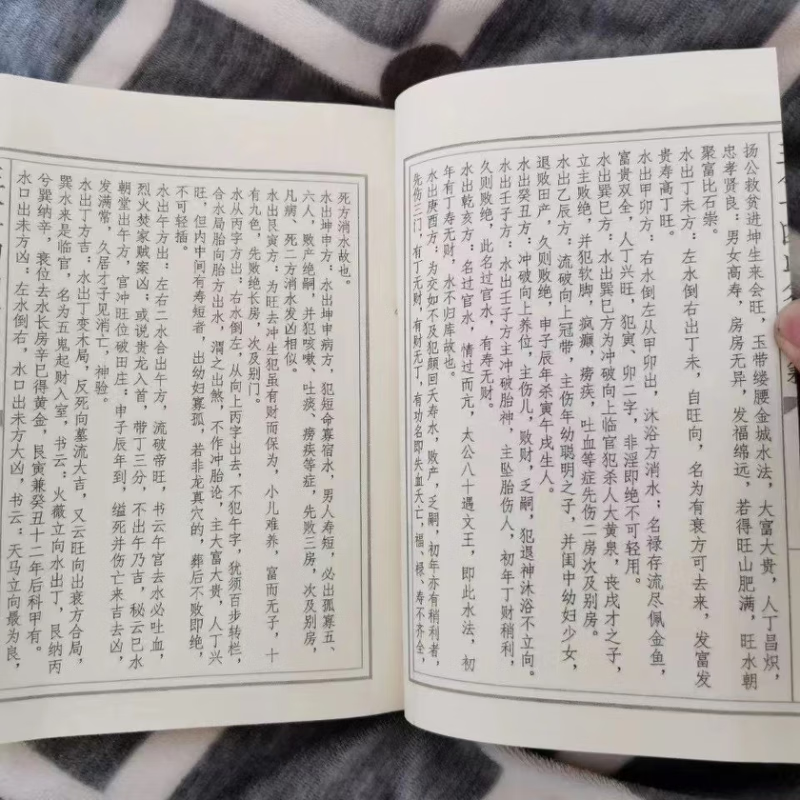 扬公救贫进坤生来会旺，玉带缕腰金城水法，大富大贵，人丁昌炽，
忠孝贤良：男女高寿，房房无异，发福绵远，若得旺山肥满，旺水朝
聚富比石崇。
水出丁未方：左水倒右出丁未，自旺向，名为有衰方可去来，发富发
贵寿高丁旺。
水出甲卯方：右水倒左从甲卯出，沐浴方消水；名禄存流尽佩金鱼，
富贵双全，人丁兴旺，犯寅、卯二字，非淫即绝不可轻用。
水出巽巳方：水出巽巳方为冲破向上临官犯杀人大黄泉，丧成才之子，
立主败绝，并犯软脚，疯癫，痨疾，吐血等症先伤二房次及别房。
水出乙辰方：流破向上冠带，主伤年幼聪明之子，并闺中幼妇少女，
退败田产，久则败绝，申子辰年杀寅午戌生人。
水出癸丑方：冲破向上养位，主伤儿，败财，乏嗣，犯退神沐浴不立向。
水出壬子方：水出壬子方主冲破胎神，主坠胎伤人，初年丁财稍利，
久则败绝，此名过宫水，有寿无财。
水出乾亥方：名过宫水，情过而亢，太公八十遇文王，即此水法，初
年有丁寿无财，水不归库故也。
水出庚酉方：为交如不及犯颜回夭寿水，败产，乏嗣，初年亦有稍利者，
先伤三门，有丁无财，有财无丁，有功名即失血夭亡，福、禄、寿不齐全，
死方消水故也。
水出坤申方：水出坤申病方，犯短命寡宿水，男人寿短，必出孤寡五、
六人，败产绝嗣，并犯咳嗽、吐痰、痨疾等症，先败三房，次及别房，
凡病，死二方消水发凶相似。
水出艮寅方：为旺去冲生犯虽有财而保为，小儿难养，富而无子，十
有九色，先败绝长房，次及别门。
水从丙字方出：右水倒左，从向上丙字出去，不犯午字，犹须百步转栏，
合水局向胎方出水，渭之出煞，不作冲胎论，主大富大贵，人丁兴
旺，但内中间有寿短者，出幼妇寡孤，若非龙真穴的，葬后不败即绝，
不可轻描。
水出午方出：左右二水合出午方，流破帝旺，书云午宫去水必吐血，
烈火焚家贼案凶；或说贵龙入首，带丁三分，不出午乃吉，秘云巳水
朝堂出午方，官冲旺位破田庄：申子辰年到，缢死并伤亡来吉去凶，
发满常，久居才子见消亡，神验。
水出丁方吉：水出丁变木局，反死向墓流大吉，又云旺向出衰方合局，
巽水来是临官，名为五鬼起财入室，书云：火薇立向水出丁，艮纳丙
兮巽纳辛，衰位去水长房辛巳得黄金，艮寅兼癸丑十二年后科甲有。
水口出未方凶：左水倒右，水口出未方大凶，书云：天马立向最为良，